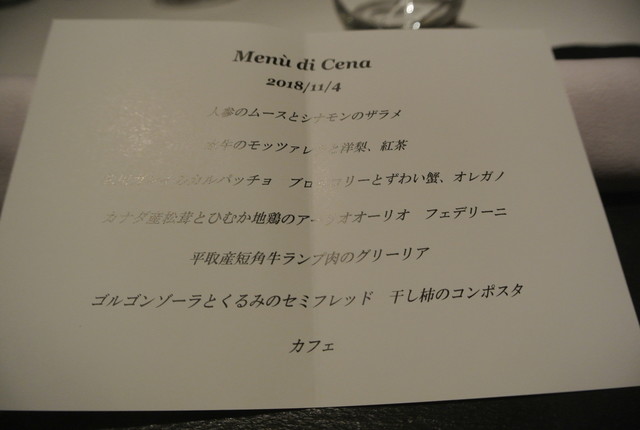 Menù di Cena
2018/11/4
人参のムースとシナモンのザラメ
水牛のモッツァレラと洋梨、紅茶
カルパッチョ ブロッコリーとずわい蟹、オレガノ
カナダ産松茸とひむか地鶏のアーリオオーリオ フェデリーニ
平取産短角牛ランプ肉のグリーリア
ゴルゴンゾーラとくるみのセミフレッド 干し柿のコンポスタ
カフェ